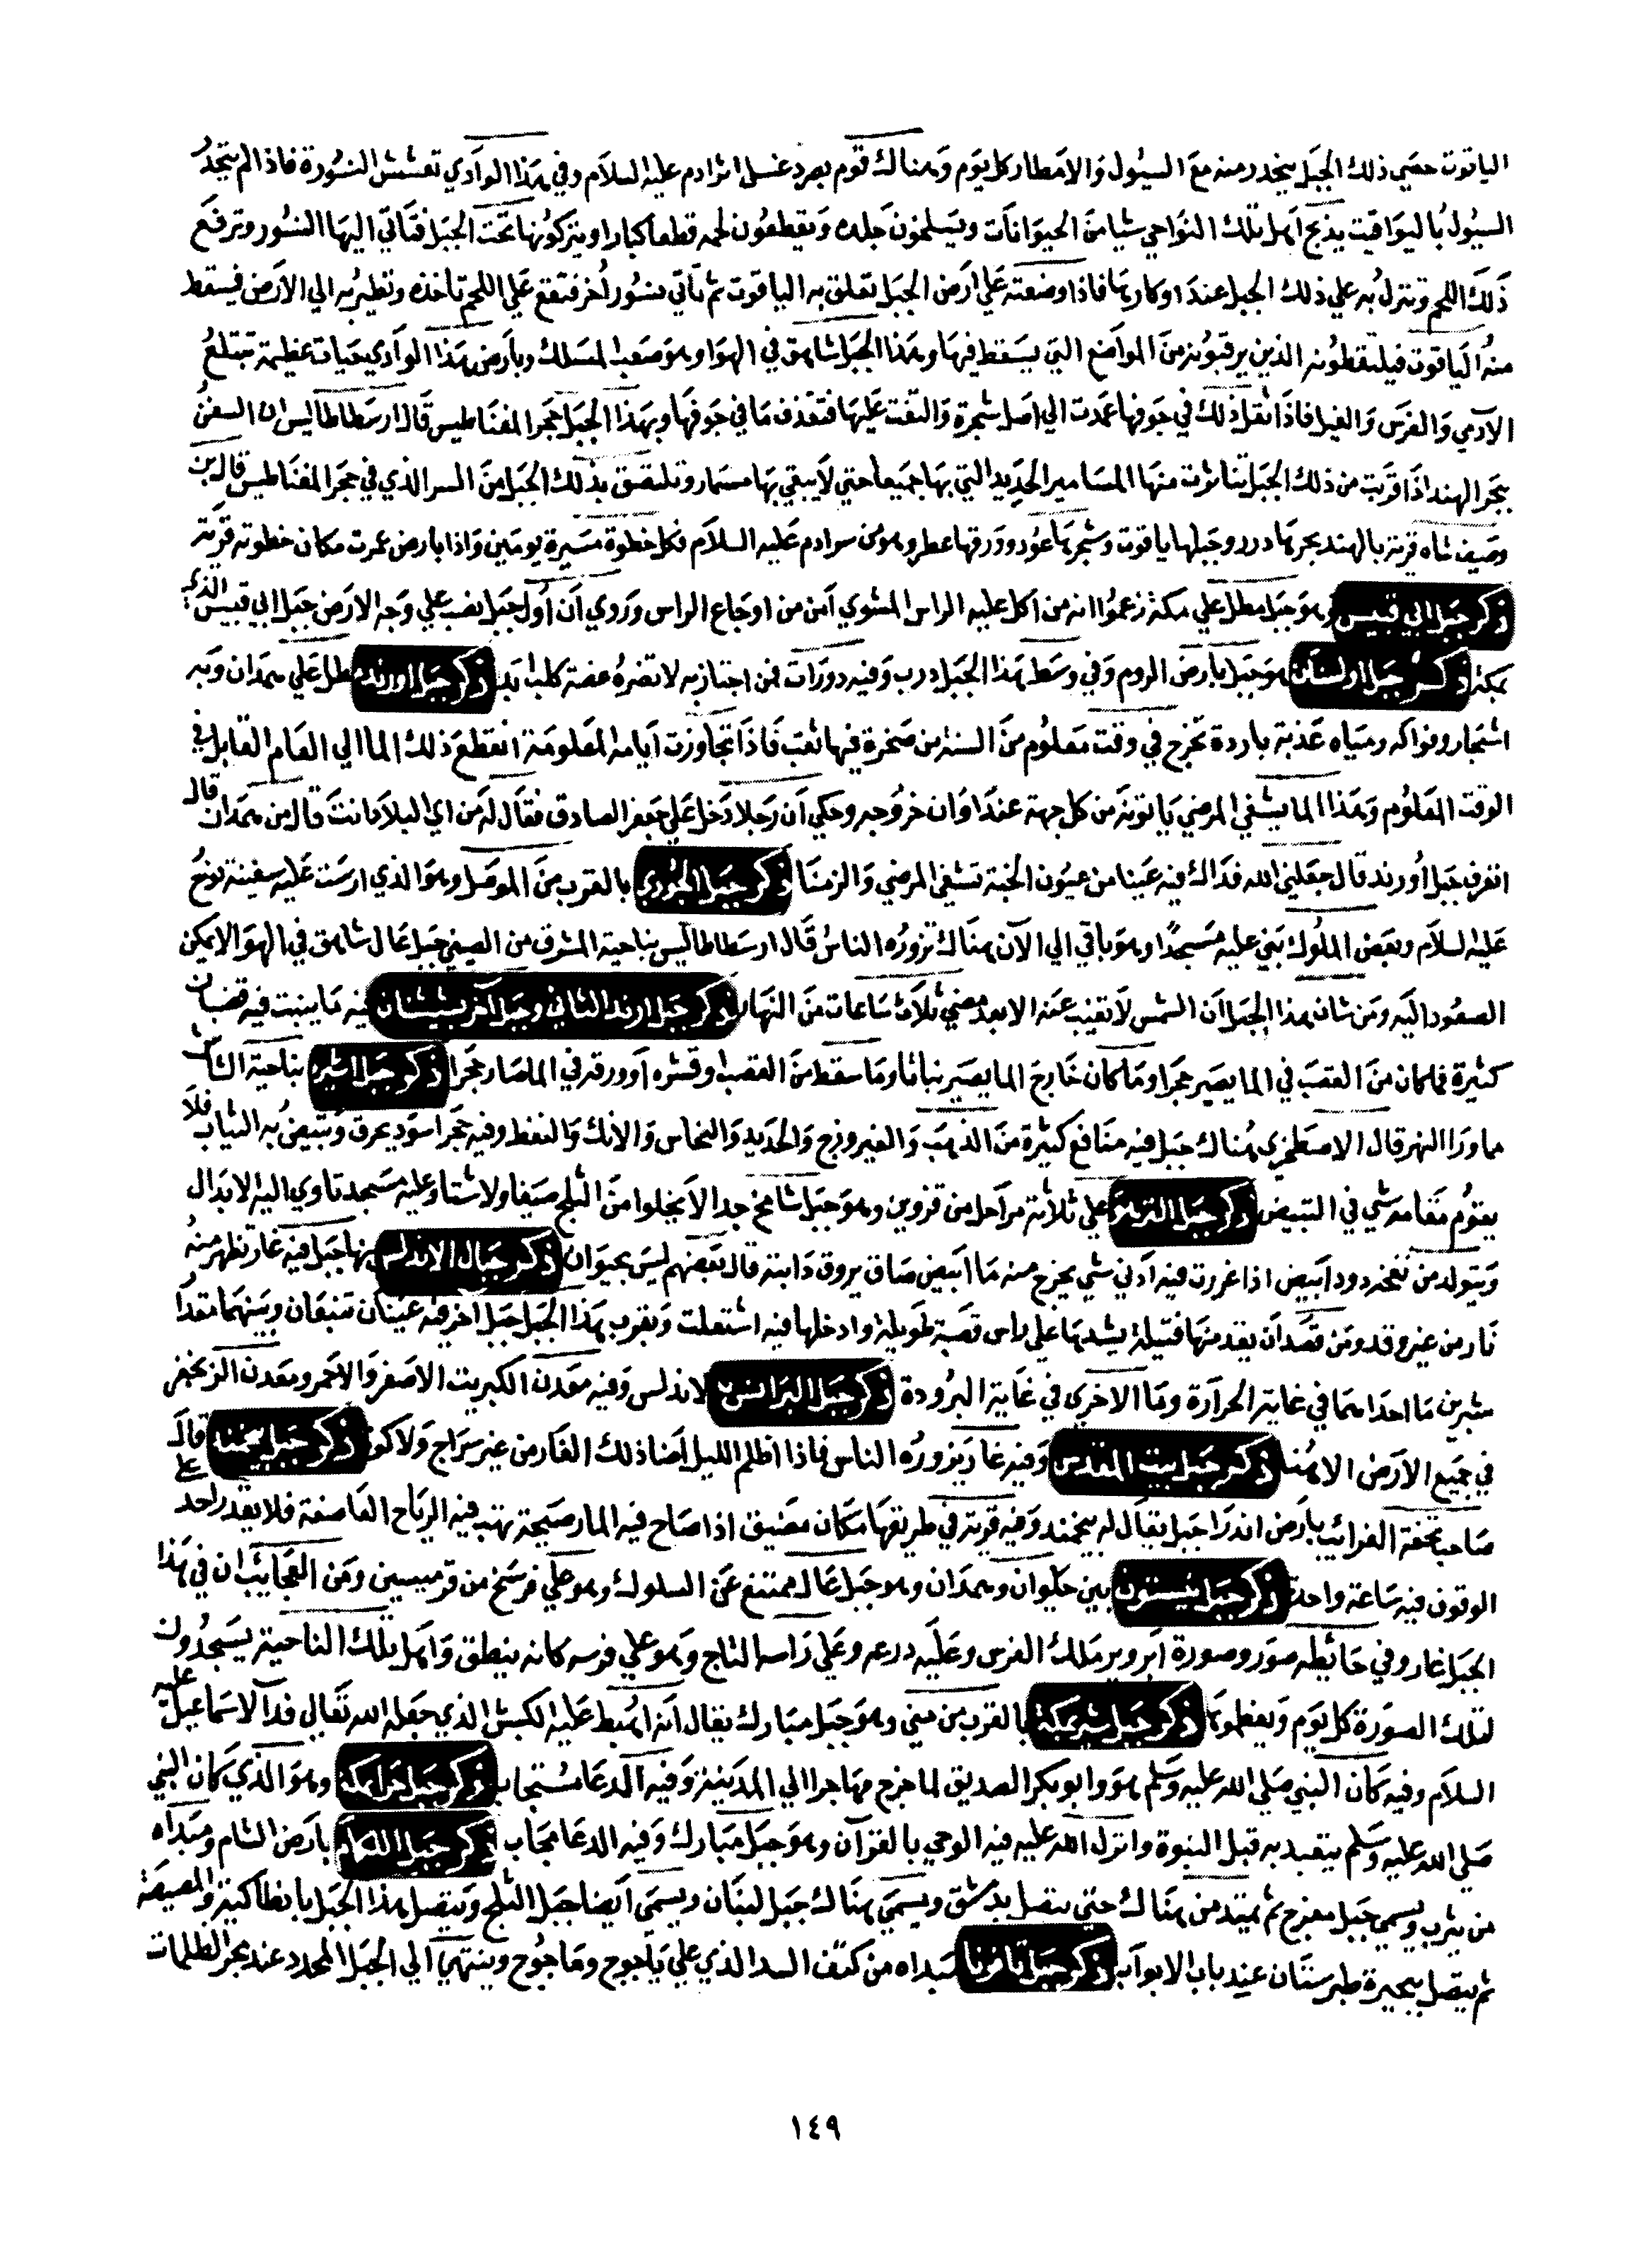 الياقوت حصي ذلك الجبل ينحدر منه مع السيول والامطار كل يوم وهناك قوم بصرد غسل اثر ادم عليه السلام وفي هذا الوادي تعشش النسورة فاذا لم يتجد
السيول باليواقيت يذبح اهل تلك النواحي شيا من الحيوانات ويسلخون جلده ويقطعون لحمه قطعا كبارا ويتركونها تحت الجبل فتاتي اليها النسور وترفع
ذلك اللحم وتنزل به علي ذلك الجبل عند اوكارها فاذا وضعته علي ارض الجبل تعلق به الياقوت ثم تاتي نسور أخر فتقع علي اللحم تاخذه وتطير به الي الارض فيسقط
منه الياقوت فيلتقطونه الذين يرقبونه من المواضع التي يسقط فيها وهذا الجبل شاهق في الهوا وهو صعب المسلك وبارض هذا الوادي حيات عظيمة تبتلع
الآدمي والفرس والفيل فاذا ثقل ذلك في جوفها عمدت الي اصل شجرة والتفت عليها فتقذف ما في جوفها وبهذا الجبل حجر المغناطيس قال ارسطاطاليس ان السفن
ببحر الهند اذا قربت من ذلك الجبل تناثرت منها المسامير الحديد التي بها جميعا حتي لا يبقي بها مسمار وتلتصق بذلك الجبل من السر الذي في حجر المغناطيس قال بن
وصيف شاه قرية بالهند بحرها درر وجبلها ياقوت وشجرها عود وورقها عطر وهو من سر ادم عليه السلام فكل خطوة مسيرة يومين واذا بارض عمرت مكان خطوته قرية
ذكر جبل ابي قبيس وهو جبل مطل علي مكة زعموا انه من اكل عليه الراس المشوي آمن من اوجاع الراس وروي ان اول جبل نصب علي وجه الارض جبل ابي قبيس الذي
بمكة ذكر جبل اولستان هو جبل بارض الروم وفي وسط هذا الجبل درب وفيه دورات فمن اجتاز به لا تضره عضة كلب ابدا ذكر جبل اورند مطل علي همدان وبه
اشجار وفواكه ومياه عذبة باردة تخرج في وقت معلوم من السنة من صخرة فيها ثقب فاذا تجاوزت ايامه المعلومة انقطع ذلك الما الي العام القابل في
الوقت المعلوم وهذا الما يشفي المرضي ياتونه من كل جهة عند اوان خروجه وحكي ان رجلا دخل علي جعفر الصادق فقال له من اي البلاد انت قال من همدان قال
اتعرف جبل اورند قال جعلني الله فداك فيه عينا من عيون الجنة تشفي المرضي والزمنا ذكر جبل الجودي بالقرب من الموصل وهو الذي ارست عليه سفينة نوح
عليه السلام وبعض الملوك بني عليه مسجدا وهو باقي الي الآن هناك تزوره الناس قال ارسطاطاليس بناحية المشرق من الصين جبل عال شاهق في الهوا لا يمكن
الصعود اليه ومن شان هذا الجبل ان الشمس لا تغيب عنه الا بعد مضي ثلاث ساعات من النهار ذكر جبل ارند الثاني وجبل اخر بشيشان فيه ما ينبت فيه قضبان
كثيرة فما كان من القصب في الما يصير حجرا وما كان خارج الما يصير نباتا وما سقط من القصب او قشره او ورقه في الما صار حجرا ذكر جبل اشبره بناحية الشاش
مما ورا النهر قال الاصطخري هناك جبل فيه منافع كثيرة من الذهب والفيروزج والحديد والنحاس والانك والنفط وفيه حجر اسود يحرق وتبيض به الثياب فلا
يقوم مقامه شي في التبييض ذكر جبل الترمد علي ثلاثة مراحل من قزوين وهو جبل شامخ جدا لا يخلوا من الثلج صيفا ولا شتا وعليه مسجد تاوي اليه الابدال
ويتولد من ثلجه دود ابيض اذا غرزت فيه ادني شي يخرج منه ما ابيض صاف يروق دابته قال بعضهم ليس بحيوان ذكر جبال الاندلس بها جبل فيه غار تظهر منه
نار من غير وقد ومن قصد ان يقد منها فتيلة يشدها علي راس قصبة طويلة وادخلها فيه اشتعلت وبقرب هذا الجبل جبل اخر فيه عينان تنبعان وبينهما مقدار
شبرين ما احداهما في غاية الحرارة وما الاخري في غاية البرودة ذكر جبل البرانس لاندلس وفيه معدن الكبريت الاصفر والاحمر ومعدن الزنجفر
في جميع الارض الا هنا ذكر جبل بيت المقدس وفيه غار يزوره الناس فاذا اظلم الليل اضا ذلك الغار من غير سراج ولا كو ذكر جبل بيخمند قال
صاحب تحفة الغرائب بارض اندرا جبل يقال له بيخمند وفيه قرية في طريقها مكان مضيق اذا صاح فيه المار صيحة تهب فيه الرياح العاصفة فلا يقدر احد علي
الوقوف فيه ساعة واحدة ذكر جبل بيستون بين حلوان وهمدان وهو جبل عال ممتنع عن السلوك وهو علي فرسخ من قرميسين ومن العجائب ان في هذا
الجبل غار وفي حائطه صور وصورة ابرويز ملك الفرس وعليه درعه وعلي راسه التاج وهو علي فرسه كانه ينطق واهل تلك الناحية يسجدون
لتلك الصورة كل يوم ويعظموها ذكر جبل ثبير مكة بالقرب من مني وهو جبل مبارك يقال انه اهبط عليه الكبش الذي جعله الله تعالي فدا لاسماعيل عليه
السلام وفيه كان النبي صلي الله عليه وسلم هو وابو بكر الصديق لما خرج مهاجرا الي المدينة وفيه الدعا مستجاب ذكر جبل حرا بمكة وهو الذي كان النبي
صلي الله عليه وسلم يتعبد به قبل النبوة وانزل الله عليه فيه الوحي بالقرآن وهو جبل مبارك وفيه الدعا مجاب ذكر جبل اللكام بارض الشام ومبداه
من يثرب ويسمي جبل مفرج ثم يمتد من هناك حتي يتصل بدمشق ويسمي هناك جبل لبنان ويسمي ايضا جبل الثلج ويتصل هذا الجبل بانطاكية والمصيصة
ثم يتصل ببحيرة طبرستان عند باب الابواب ذكر جبل مبداه من كتف السد الذي علي ياجوج وماجوج وينتهي الي الجبل المحدد عند بحر الظلمات
١٤٩